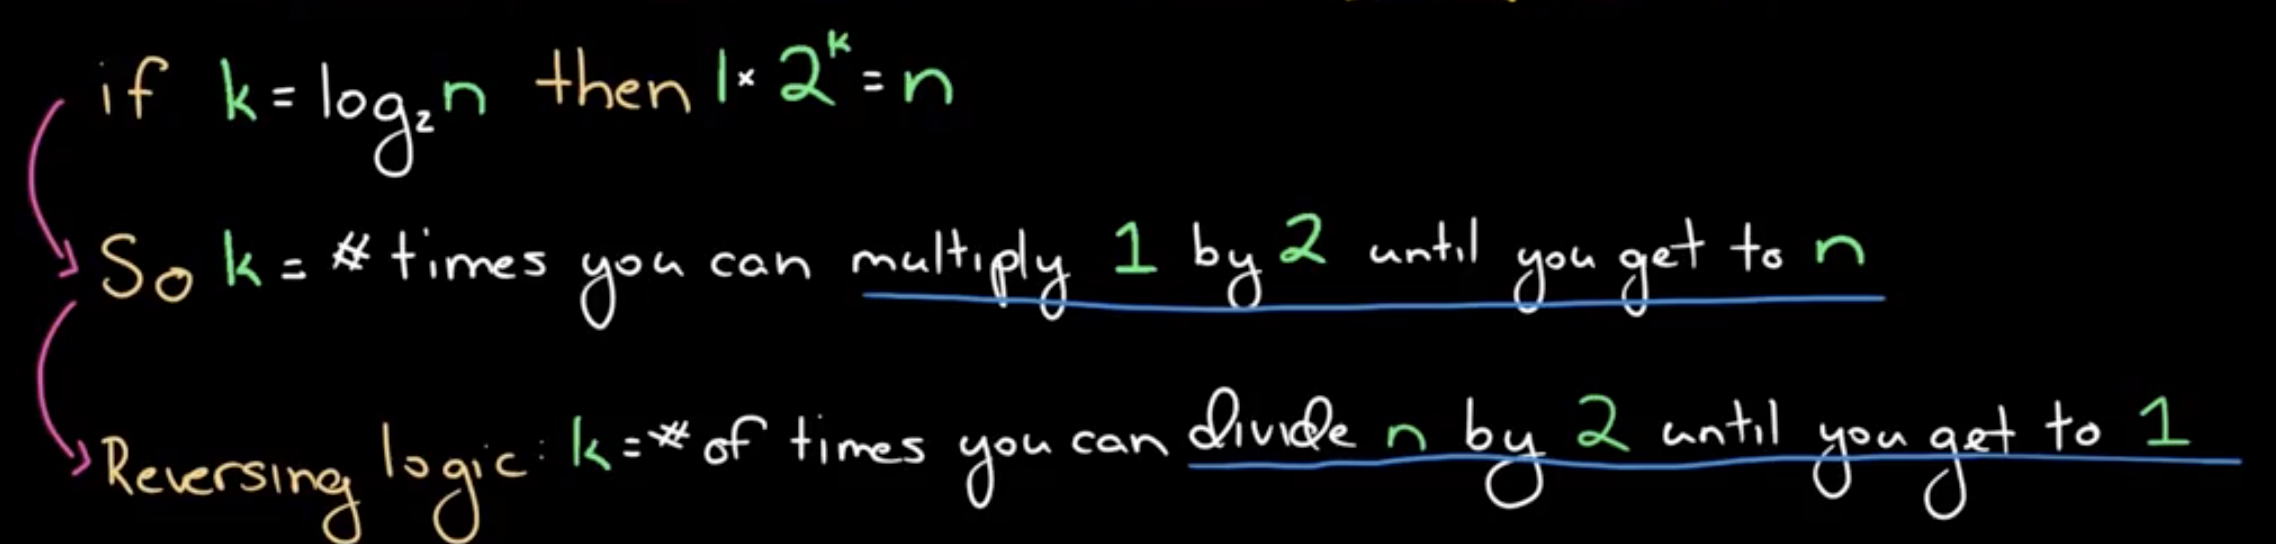 if k = log₂n then 1 × 2ᵏ = n
So k = # times you can multiply 1 by 2 until you get to n
Reversing logic: k = # of times you can divide n by 2 until you get to 1